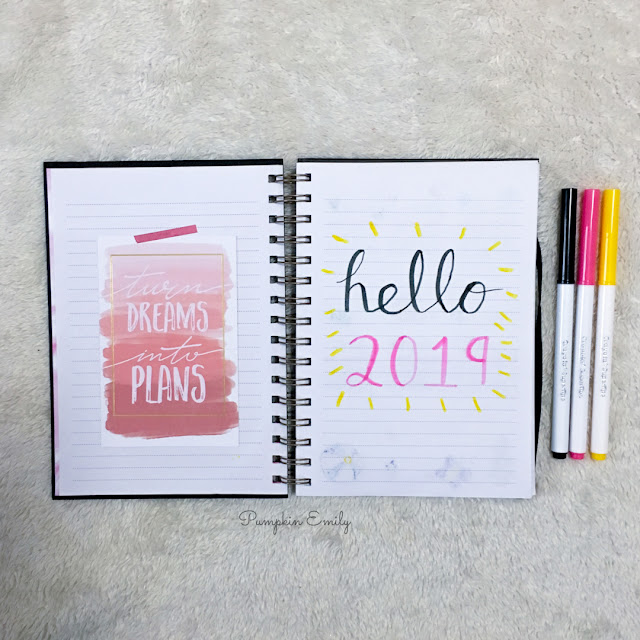 turn
DREAMS
into
PLANS
hello
2019
Pumpkin Emily